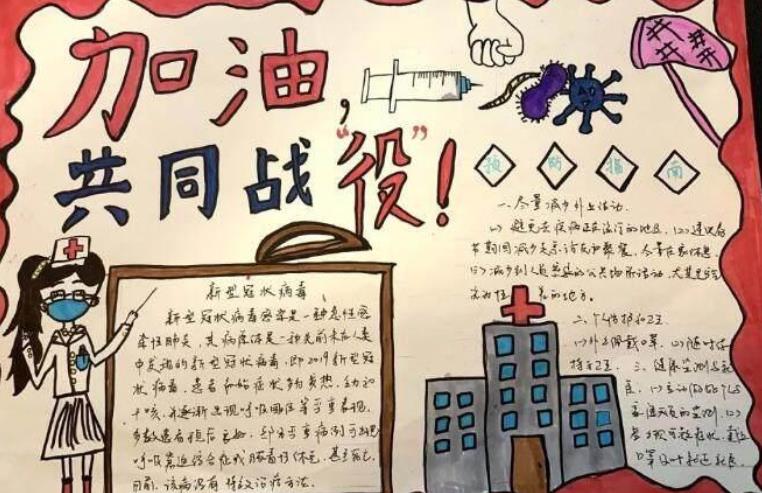 加油,
共同战"役"!
预防指南
一、尽量减少外出活动.
(1) 避免去疾病正在流行的地区. (2) 建议春
节期间减少走亲访友和聚餐, 尽量在家休息.
(3) 减少到人员密集的公共场所活动, 尤其是空气
流动性差的地方。
二、个人防护和卫
(1)外出佩戴口罩. (2) 随时保
持手卫生. 三、健康监测与就
新型冠状病毒
新型冠状病毒感染是一种急性感
染性肺炎, 其病原体是一种先前未在人类
中发现的新型冠状病毒, 即2019新型冠
状病毒, 患者初始症状多为发热、
干咳, 并逐渐出现呼吸困难等严重表现.
多数患者预后良好, 部分严重病例可出现
呼吸窘迫综合征或脓毒性休克, 甚至死亡.
目前, 该病没有特效治疗方法.